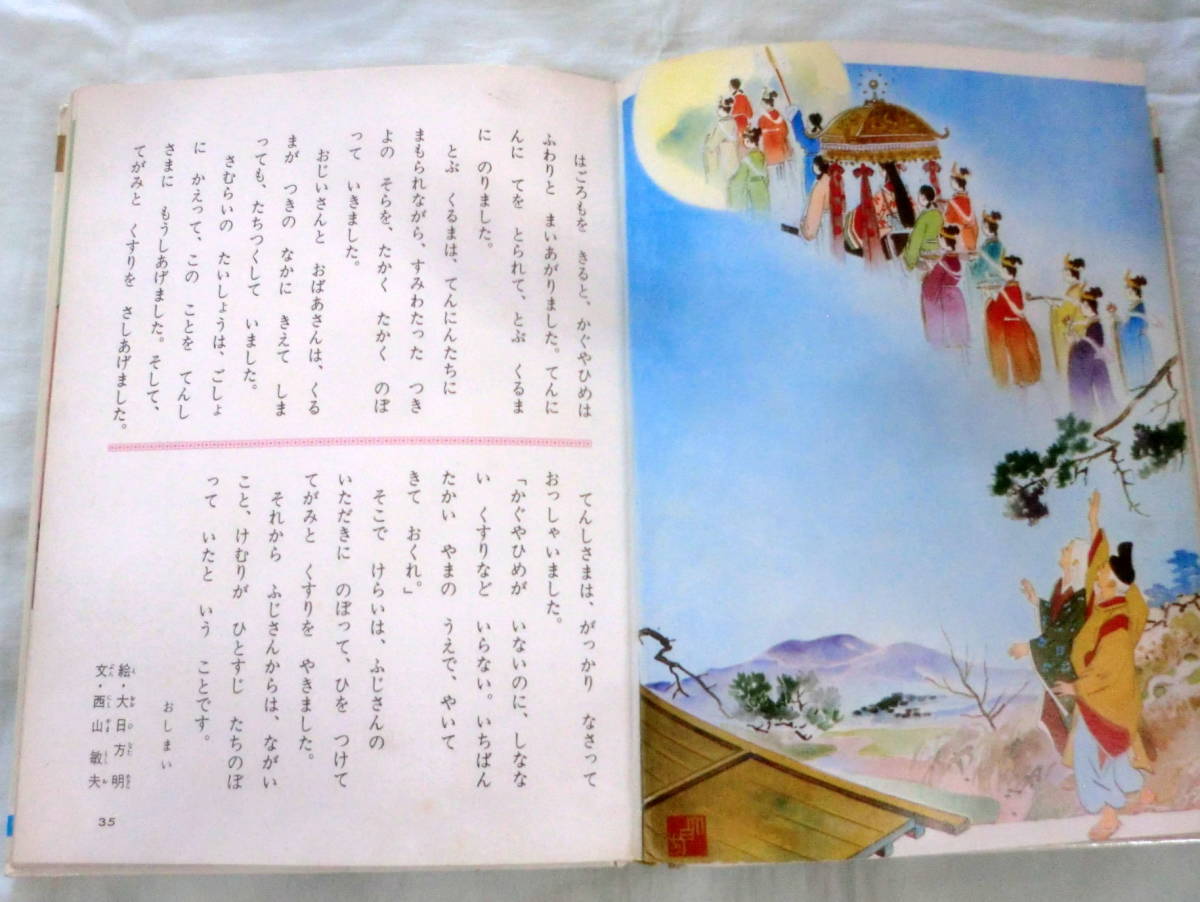 はごろもを きると、かぐやひめは
ふわりと まいあがりました。てんに
んに てを とられて、とぶ くるま
に のりました。
とぶ くるまは、てんにんたちに
まもられながら、すみわたった つき
よの そらを、たかく たかく のぼ
って いきました。
おじいさんと おばあさんは、くる
まが つきの なかに きえて しま
っても、たちつくして いました。
さむらいの たいしょうは、ごしょ
に かえって、この ことを てんし
さまに もうしあげました。そして、
てがみと くすりを さしあげました。
てんしさまは、がっかり なさって
おっしゃいました。
「かぐやひめが いないのに、しなな
い くすりなど いらない。いちばん
たかい やまの うえで、やいて
きて おくれ。」
そこで けらいは、ふじさんの
いただきに のぼって、ひを つけて
てがみと くすりを やきました。
それから ふじさんからは、ながい
こと、けむりが ひとすじ たちのぼ
って いたと いう ことです。
おしまい
絵・大日方明
文・西山敏夫
35